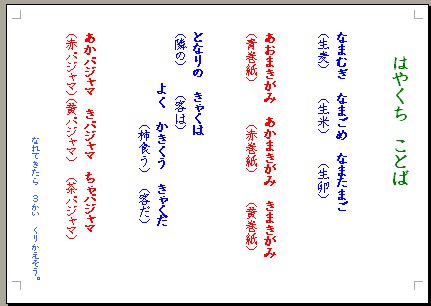 はやくち　ことば
なまむぎ　なまごめ　なまたまご
（生麦）　（生米）　（生卵）
あおまきがみ　あかまきがみ　きまきがみ
（青巻紙）　（赤巻紙）　（黄巻紙）
となりの　きゃくは
（隣の）　（客は）
よく　かきくう　きゃくだ
（柿食う）　（客だ）
あかパジャマ　きパジャマ　ちゃパジャマ
（赤パジャマ）（黄パジャマ）（茶パジャマ）
なれてきたら　３かい　くりかえそう。